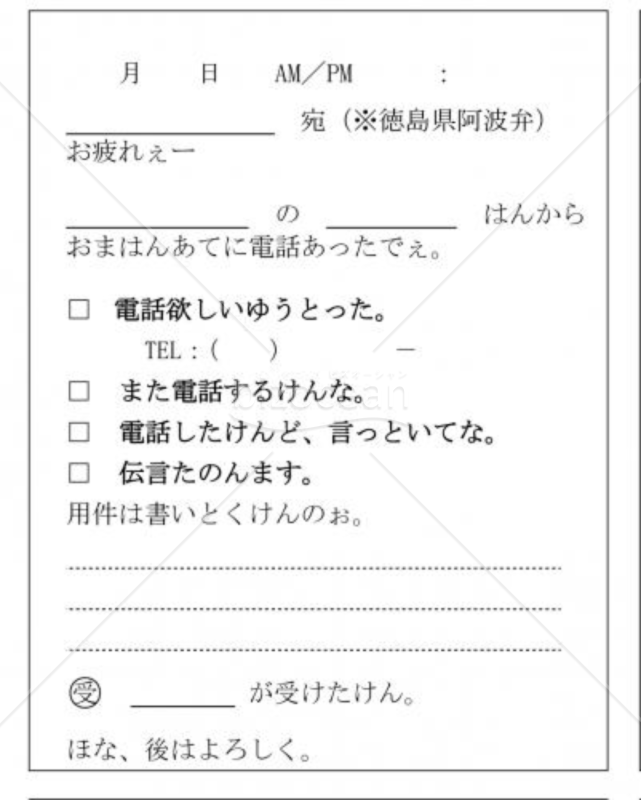 月 日 AM／PM :
宛（※徳島県阿波弁）
お疲れぇー
の はんから
おまはんあてに電話あったでぇ。
□ 電話欲しいゆうとった。
TEL：( ) －
□ また電話するけんな。
□ 電話したけんど、言っといてな。
□ 伝言たのんます。
用件は書いとくけんのぉ。
㊌ が受けたけん。
ほな、後はよろしく。